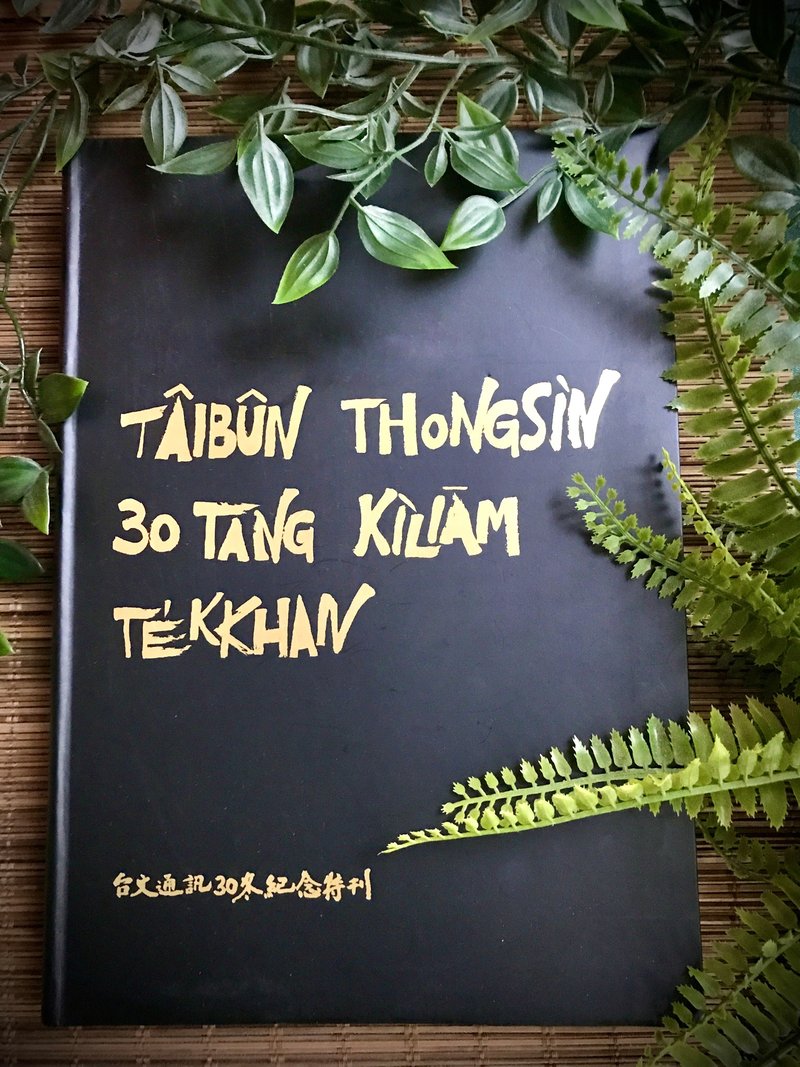 TÂIBÛN THONGSÌN
30 TANG KÌLIĀM
TE̍KKHAN
台文通訊30冬紀念特刊